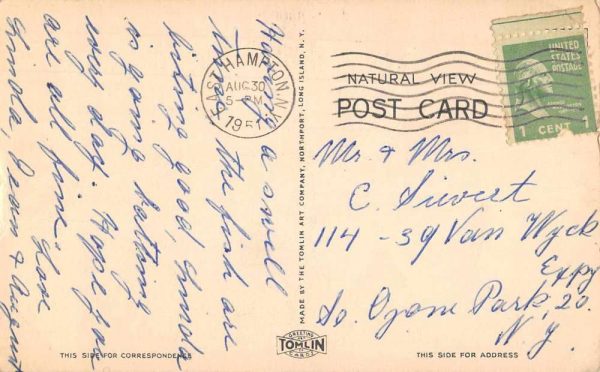 Having a swell
time, the fish are
biting good, Linda
is going bathing
every day. Hope you
are all fine. Love
Linda, Jean & August
EAST HAMPTON, N.Y.
AUG 30
5-PM
1951
NATURAL VIEW
POST CARD
UNITED
STATES
POSTAGE
1 CENT 1
MADE BY THE TOMLIN ART COMPANY, NORTHPORT, LONG ISLAND, N. Y.
Mr. & Mrs.
C. Sievert
114-39 Van Wyck
Expy
So. Ozone Park, 20.
N.Y.
THIS SIDE FOR CORRESPONDENCE
GREETING
TOMLIN
CARDS
THIS SIDE FOR ADDRESS